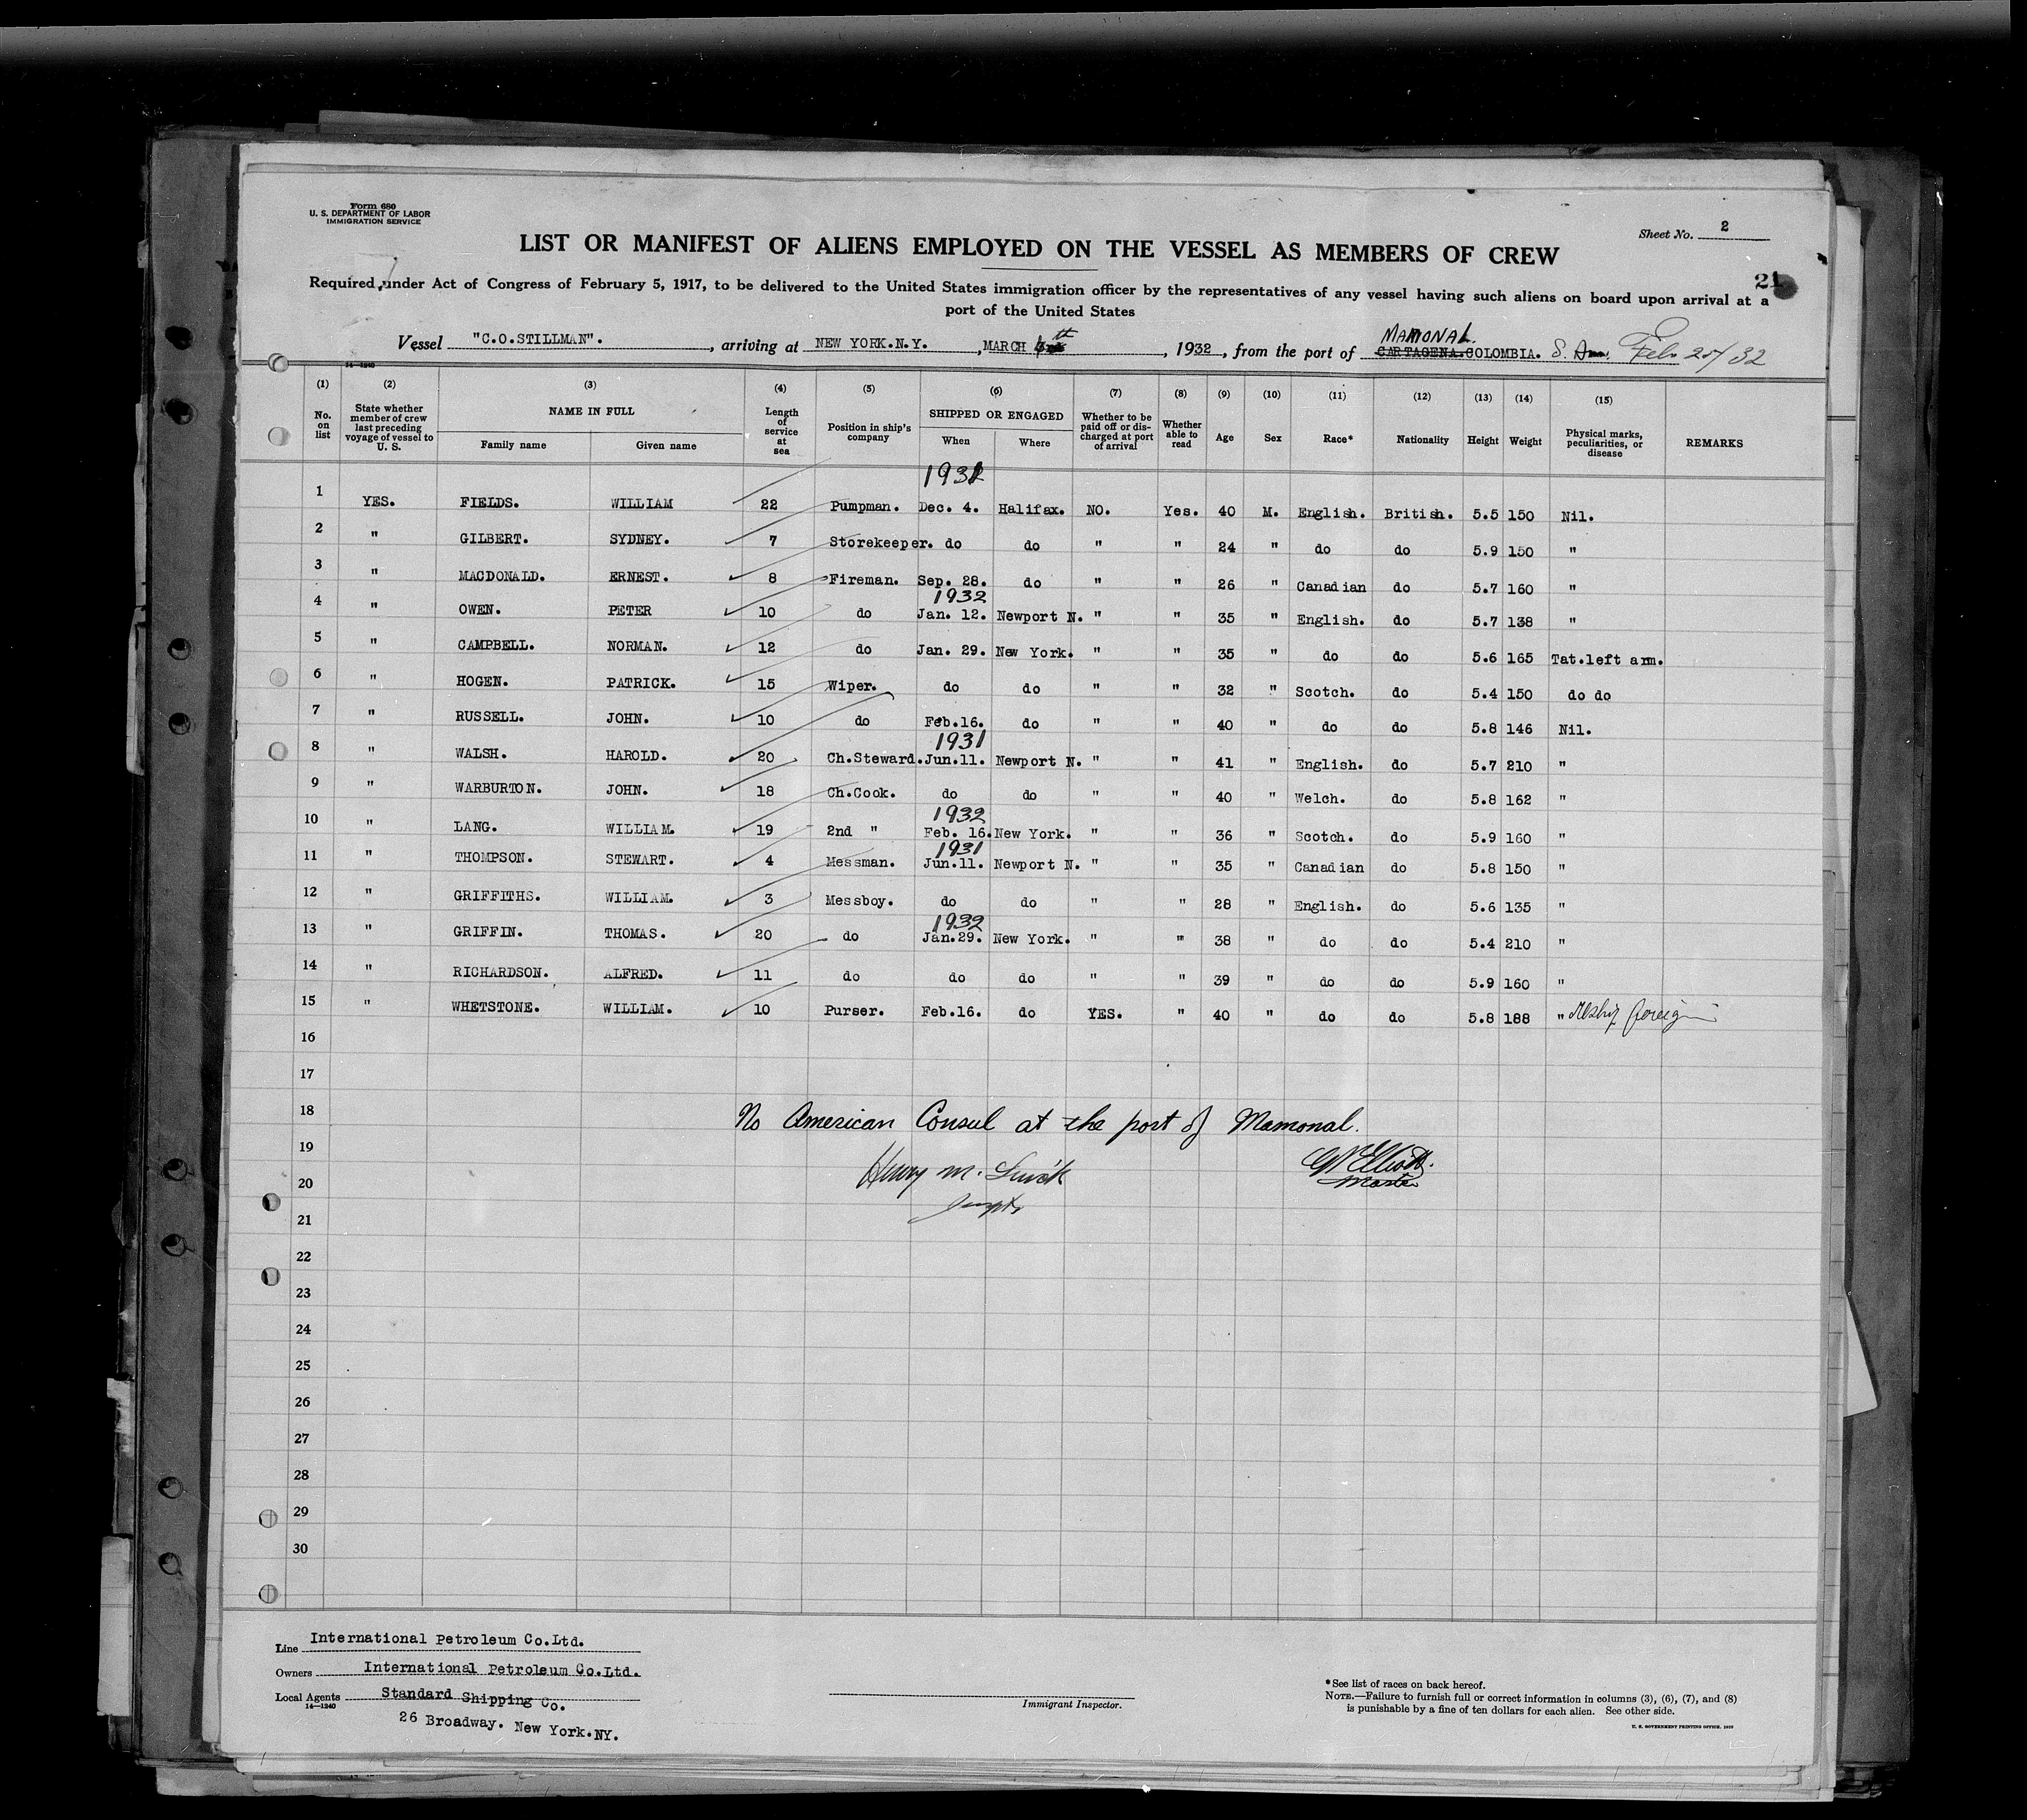 Form 680
U. S. DEPARTMENT OF LABOR
IMMIGRATION SERVICE
Sheet No. 2
LIST OR MANIFEST OF ALIENS EMPLOYED ON THE VESSEL AS MEMBERS OF CREW
21
Required under Act of Congress of February 5, 1917, to be delivered to the United States immigration officer by the representatives of any vessel having such aliens on board upon arrival at a
port of the United States
MAMONAL.
Vessel "C.O.STILLMAN". , arriving at NEW YORK.N.Y. , MARCH 4th , 1932 , from the port of CARTAGENA.COLOMBIA. S. Am. Feb 25/32
14—1240
(1) (2) (3) (4) (5) (6) (7) (8) (9) (10) (11) (12) (13) (14) (15)
No. on list State whether member of crew last preceding voyage of vessel to U. S. NAME IN FULL Family name Given name Length of service at sea Position in ship's company SHIPPED OR ENGAGED When Where Whether to be paid off or discharged at port of arrival Whether able to read Age Sex Race* Nationality Height Weight Physical marks, peculiarities, or disease REMARKS
1931
1 YES. FIELDS. WILLIAM 22 Pumpman. Dec. 4. Halifax. NO. Yes. 40 M. English. British. 5.5 150 Nil.
2 " GILBERT. SYDNEY. 7 Storekeeper. do do " " 24 " do do 5.9 150 "
3 " MACDONALD. ERNEST. 8 Fireman. Sep. 28. do " " 26 " Canadian do 5.7 160 "
1932
4 " OWEN. PETER 10 do Jan. 12. Newport N. " " 35 " English. do 5.7 138 "
5 " CAMPBELL. NORMAN. 12 do Jan. 29. New York. " " 35 " do do 5.6 165 Tat.left arm.
6 " HOGEN. PATRICK. 15 Wiper. do do " " 32 " Scotch. do 5.4 150 do do
7 " RUSSELL. JOHN. 10 do Feb.16. do " " 40 " do do 5.8 146 Nil.
1931
8 " WALSH. HAROLD. 20 Ch.Steward. Jun.11. Newport N. " " 41 " English. do 5.7 210 "
9 " WARBURTON. JOHN. 18 Ch.Cook. do do " " 40 " Welch. do 5.8 162 "
1932
10 " LANG. WILLIAM. 19 2nd " Feb. 16. New York. " " 36 " Scotch. do 5.9 160 "
1931
11 " THOMPSON. STEWART. 4 Messman. Jun.11. Newport N. " " 35 " Canadian do 5.8 150 "
12 " GRIFFITHS. WILLIAM. 3 Messboy. do do " " 28 " English. do 5.6 135 "
1932
13 " GRIFFIN. THOMAS. 20 do Jan.29. New York. " " 38 " do do 5.4 210 "
14 " RICHARDSON. ALFRED. 11 do do do " " 39 " do do 5.9 160 "
15 " WHETSTONE. WILLIAM. 10 Purser. Feb.16. do YES. " 40 " do do 5.8 188 " Reship foreign
16
17
18 No American Consul at the port of Mamonal.
19 Henry M. G W Elliott.
20 Master
21
22
23
24
25
26
27
28
29
30
Line International Petroleum Co.Ltd.
Owners International Petroleum Co.Ltd.
Local Agents Standard Shipping Co.
14—1240
26 Broadway. New York.NY.
Immigrant Inspector.
*See list of races on back hereof.
NOTE.—Failure to furnish full or correct information in columns (3), (6), (7), and (8)
is punishable by a fine of ten dollars for each alien. See other side.
U. S. GOVERNMENT PRINTING OFFICE. 1930